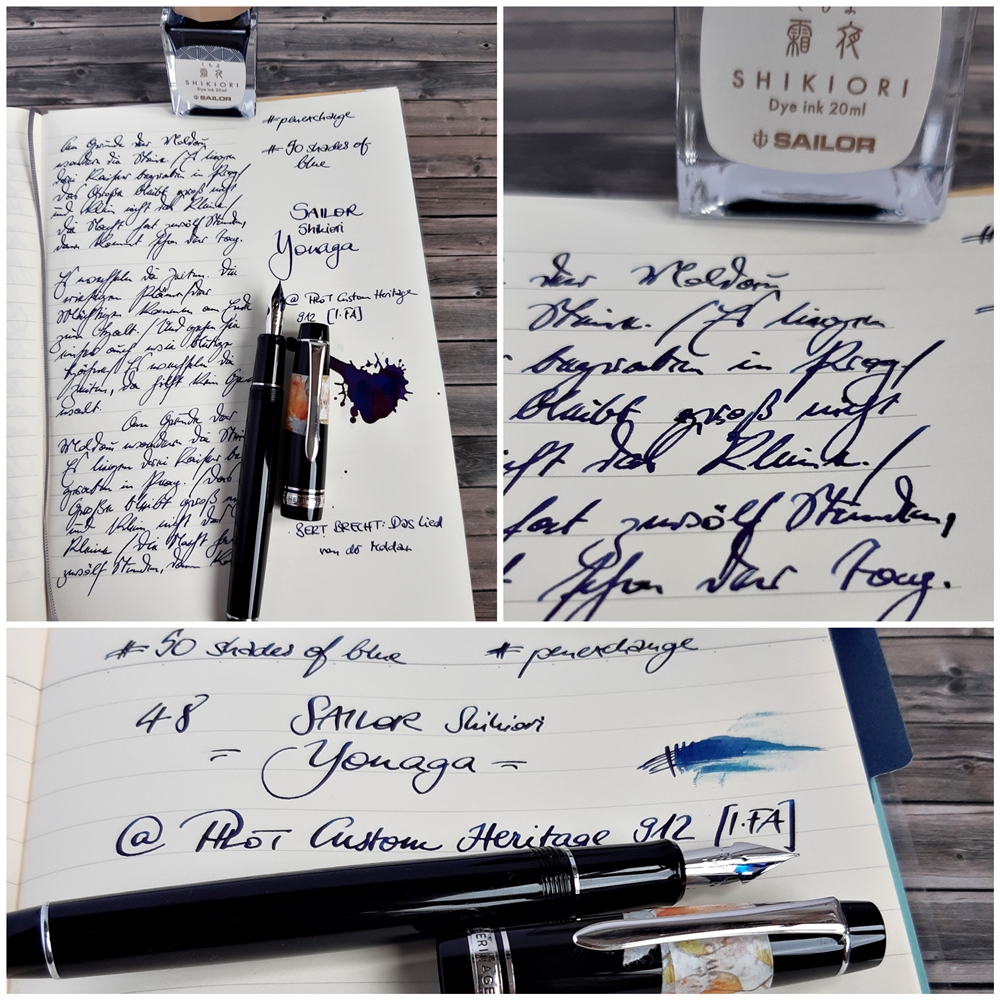 しもよ
霜夜
SHIKIORI
Dye ink 20ml
SAILOR
#penexchange
# 50 shades of
blue
SAILOR
Shikiori
Yonaga
@ PILOT Custom Heritage
912 [1.FA]
Am Grunde der Moldau
wandern die Steine. / Es liegen
drei Kaiser begraben in Prag /
Das Große bleibt groß nicht
und klein nicht das Kleine. /
Die Nacht hat zwölf Stunden,
dann kommt schon der Tag.
Es wechseln die Zeiten. Die
riesigen Pläne / der
Mächtigen kommen am Ende
zum Halt. / Und gehen sie
einher auch wie blutige
Hähne / Es wechseln die
Zeiten, da hilft kein Ge
walt.
Am Grunde der
Moldau wandern die Stei
Es liegen drei Kaiser be
graben in Prag. / Das
Große bleibt groß n
und klein nicht das
Kleine / Die Nacht ha
zwölf Stunden, dann ko
BERT BRECHT: Das Lied
von der Moldau
霜夜
SHIKIORI
Dye ink 20ml
SAILOR
der Moldau
Steine. / Es liegen
begraben in Prag /
bleibt groß nicht
nicht das Kleine. /
hat zwölf Stunden,
schon der Tag.
# 50 shades of blue # penexchange
48 SAILOR Shikiori
= Yonaga =
@ PILOT Custom Heritage 912 [1.FA]